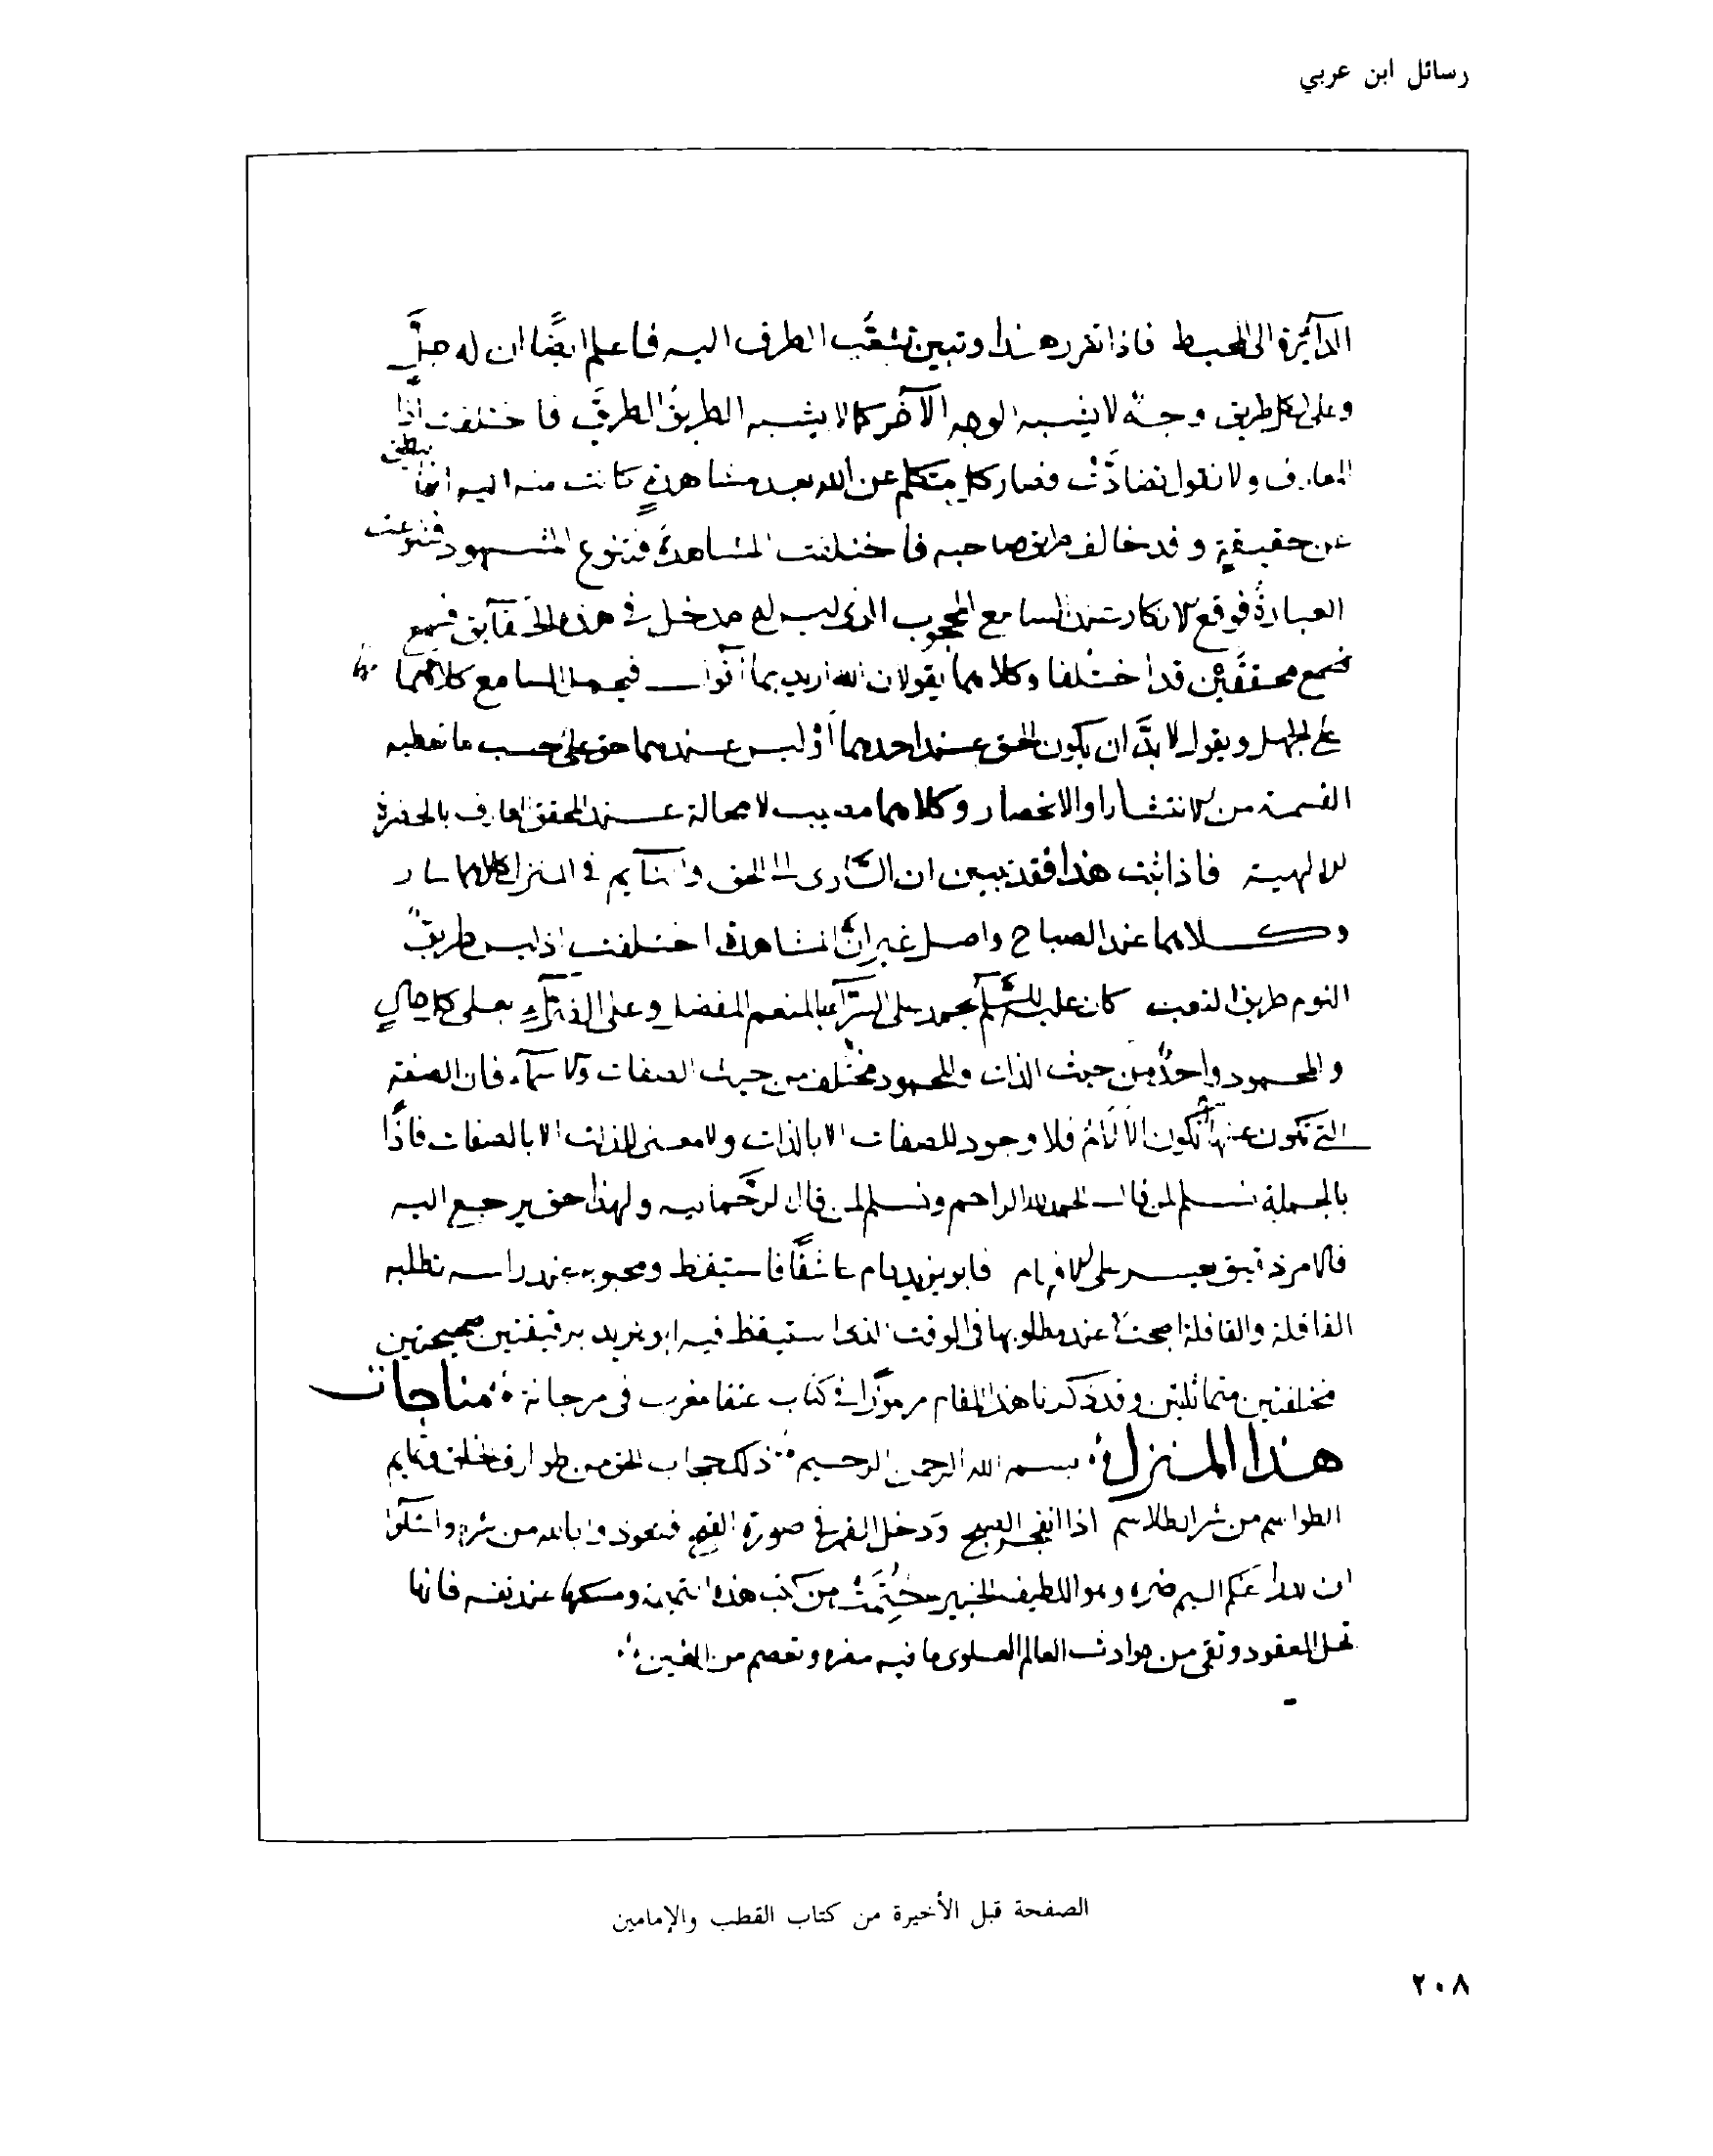 رسائل ابن عربي
الدآئرة الى المحيط فاذا تقرر هذا وتبين تشعّب الطرق اليه فاعلم ايضًا ان له جلّ
وعلا فى كل طريق وجهٌ لا يشبه الوجه الآخر كما لا يشبه الطريق الطريق فاختلفت اذًا
المعارف ولا نقول تضادّت فصار كل متكلم عن الله بعد مشاهدةٍ كانت منه اليه انما ينطق
عن حقيقةٍ وقد خالف طريق صاحبه فاختلفت المشاهدة فتنوع المشهود فتنوعت
العبارة فوقع الانكار عند السامع المحجوب الذى ليس له مدخل فى هذه الحقآيق فسمع
فسمع محققَين قد اختلفا وكلاهما يقولان الله اريد بما اقول فيحمل السامع كلامهما
على الجهل ويقول لا بدّ ان يكون الحق عند احدهما أو ليس عندهما حق على حسب ما تعطيه
القسمة من الانتشار او الانحصار وكلاهما مصيب لا محالة عند المحقق العارف بالحضرة
الالهية فاذا ثبت هذا فقد تبين ان السّارى الى الحق والنآيم فى المنزل كلاهما سار
وكلاهما عند الصباح واصل غير انّ المشاهدة اختلفت اذ ليس طريقُ
النوم طريق التعب كان عليه السّلم يحمد على السّرّآء بالمنعم المفضل وعلى الضّرّآء بعلى كل حالٍ
والمحمود واحدٌ من حيث الذات والمحمود مختلف من حيث الصفات والاسمآء فان الصفة
التى تكون عنها تكون الآثار فلا وجود للصفات الا بالذات ولا معنى للذات الا بالصفات فاذًا
بالجملة نسلم لمن قال الحمد لله الراحم ونسلم لمن قال الرحمانيه ولهذا حق يرجع اليه
فالامر دقيق يعسر على الافهام فابو يزيد نام عاشقًا فاستيقظ ومحبوبه عند راسه تطلبه
القافلة والقافلة اصبحت عند مطلوبها فى الوقت الذى استيقظ فيه ابو يزيد برقيقتين صحيحتين
مختلفتين متماثلتين وقد ذكرنا هذا المقام مرموزًا فى كتاب عنقا مغرب فى مرجانة مناجات
هذا المنزل بسم الله الرحمن الرحيم ذلك حجاب الحق من طوارق الخلق وتمايم
الطواسم من شر الطلاسم اذا انفجر الصبح ودخل القمر فى صورة الفتح فتعوذوا بالله من شره واسئلوا
ان يدرا عنكم اليم ضره وهو اللطيف الخبير ختمت من كتب هذه التميمة ومسكها عند نفسه فانها
تحل المعقود وتقى من حوادث العالم العلوى ما فيه مضره وتعصم من العين
الصفحة قبل الأخيرة من كتاب القطب والإمامين
٢٠٨